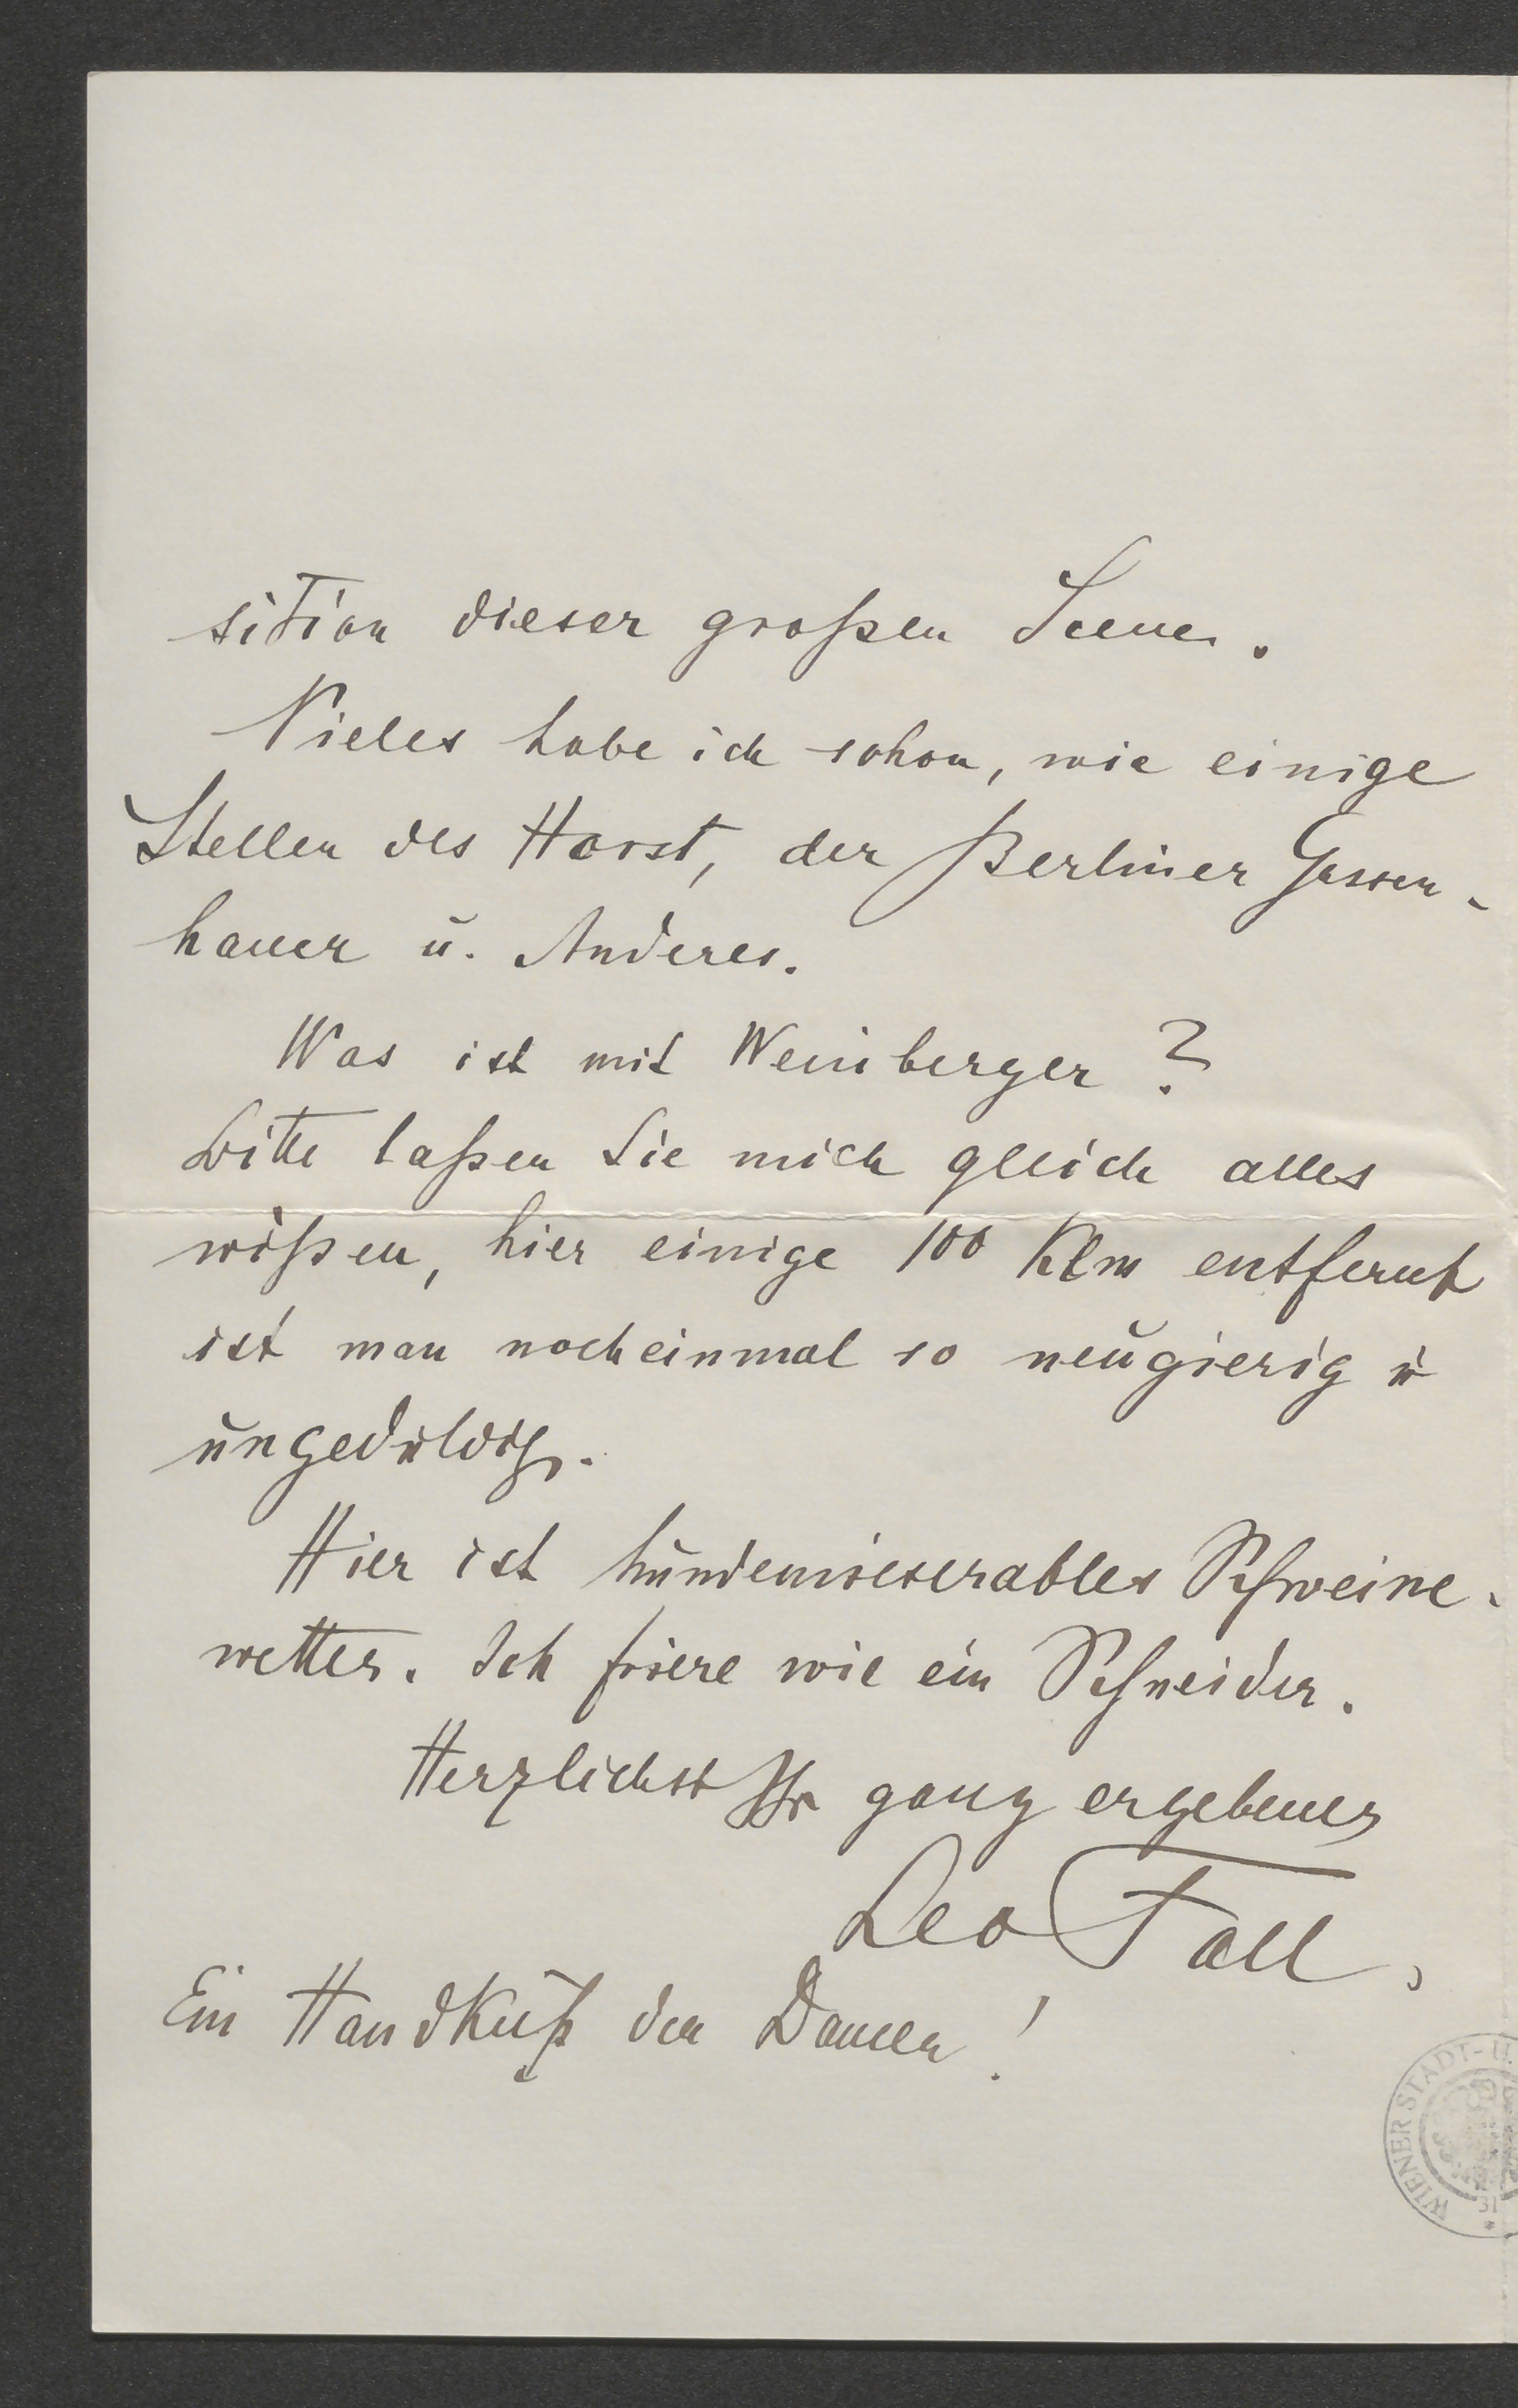 sition dieser großen Scene.
Vieles habe ich schon, wie einige
Stellen des Horst, der Berliner Gassen-
hauer u. Anderes.
Was ist mit Weinberger?
Bitte laßen Sie mich gleich alles
wißen, hier einige 100 Klm entfernt
ist man nocheinmal so neugierig u
ungeduldig.
Hier ist hundemieserables Schweine-
wetter. Ich friere wie ein Schneider.
Herzlichst Ihr ganz ergebener
Leo Fall.
Ein Handkuß den Damen!
WIENER STADT- U.
31